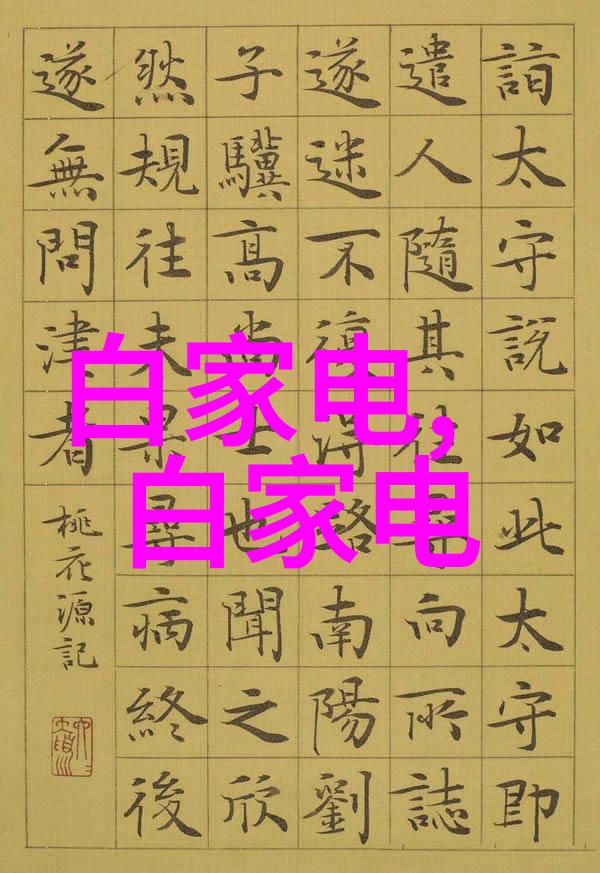 詣太守說如此太守即
遣人隨其往尋向所誌
遂迷不復得路南陽劉
子驥高尚士也聞之欣
然規往未果尋病終後
遂無問津者
桃花源記
白家电,
白家电